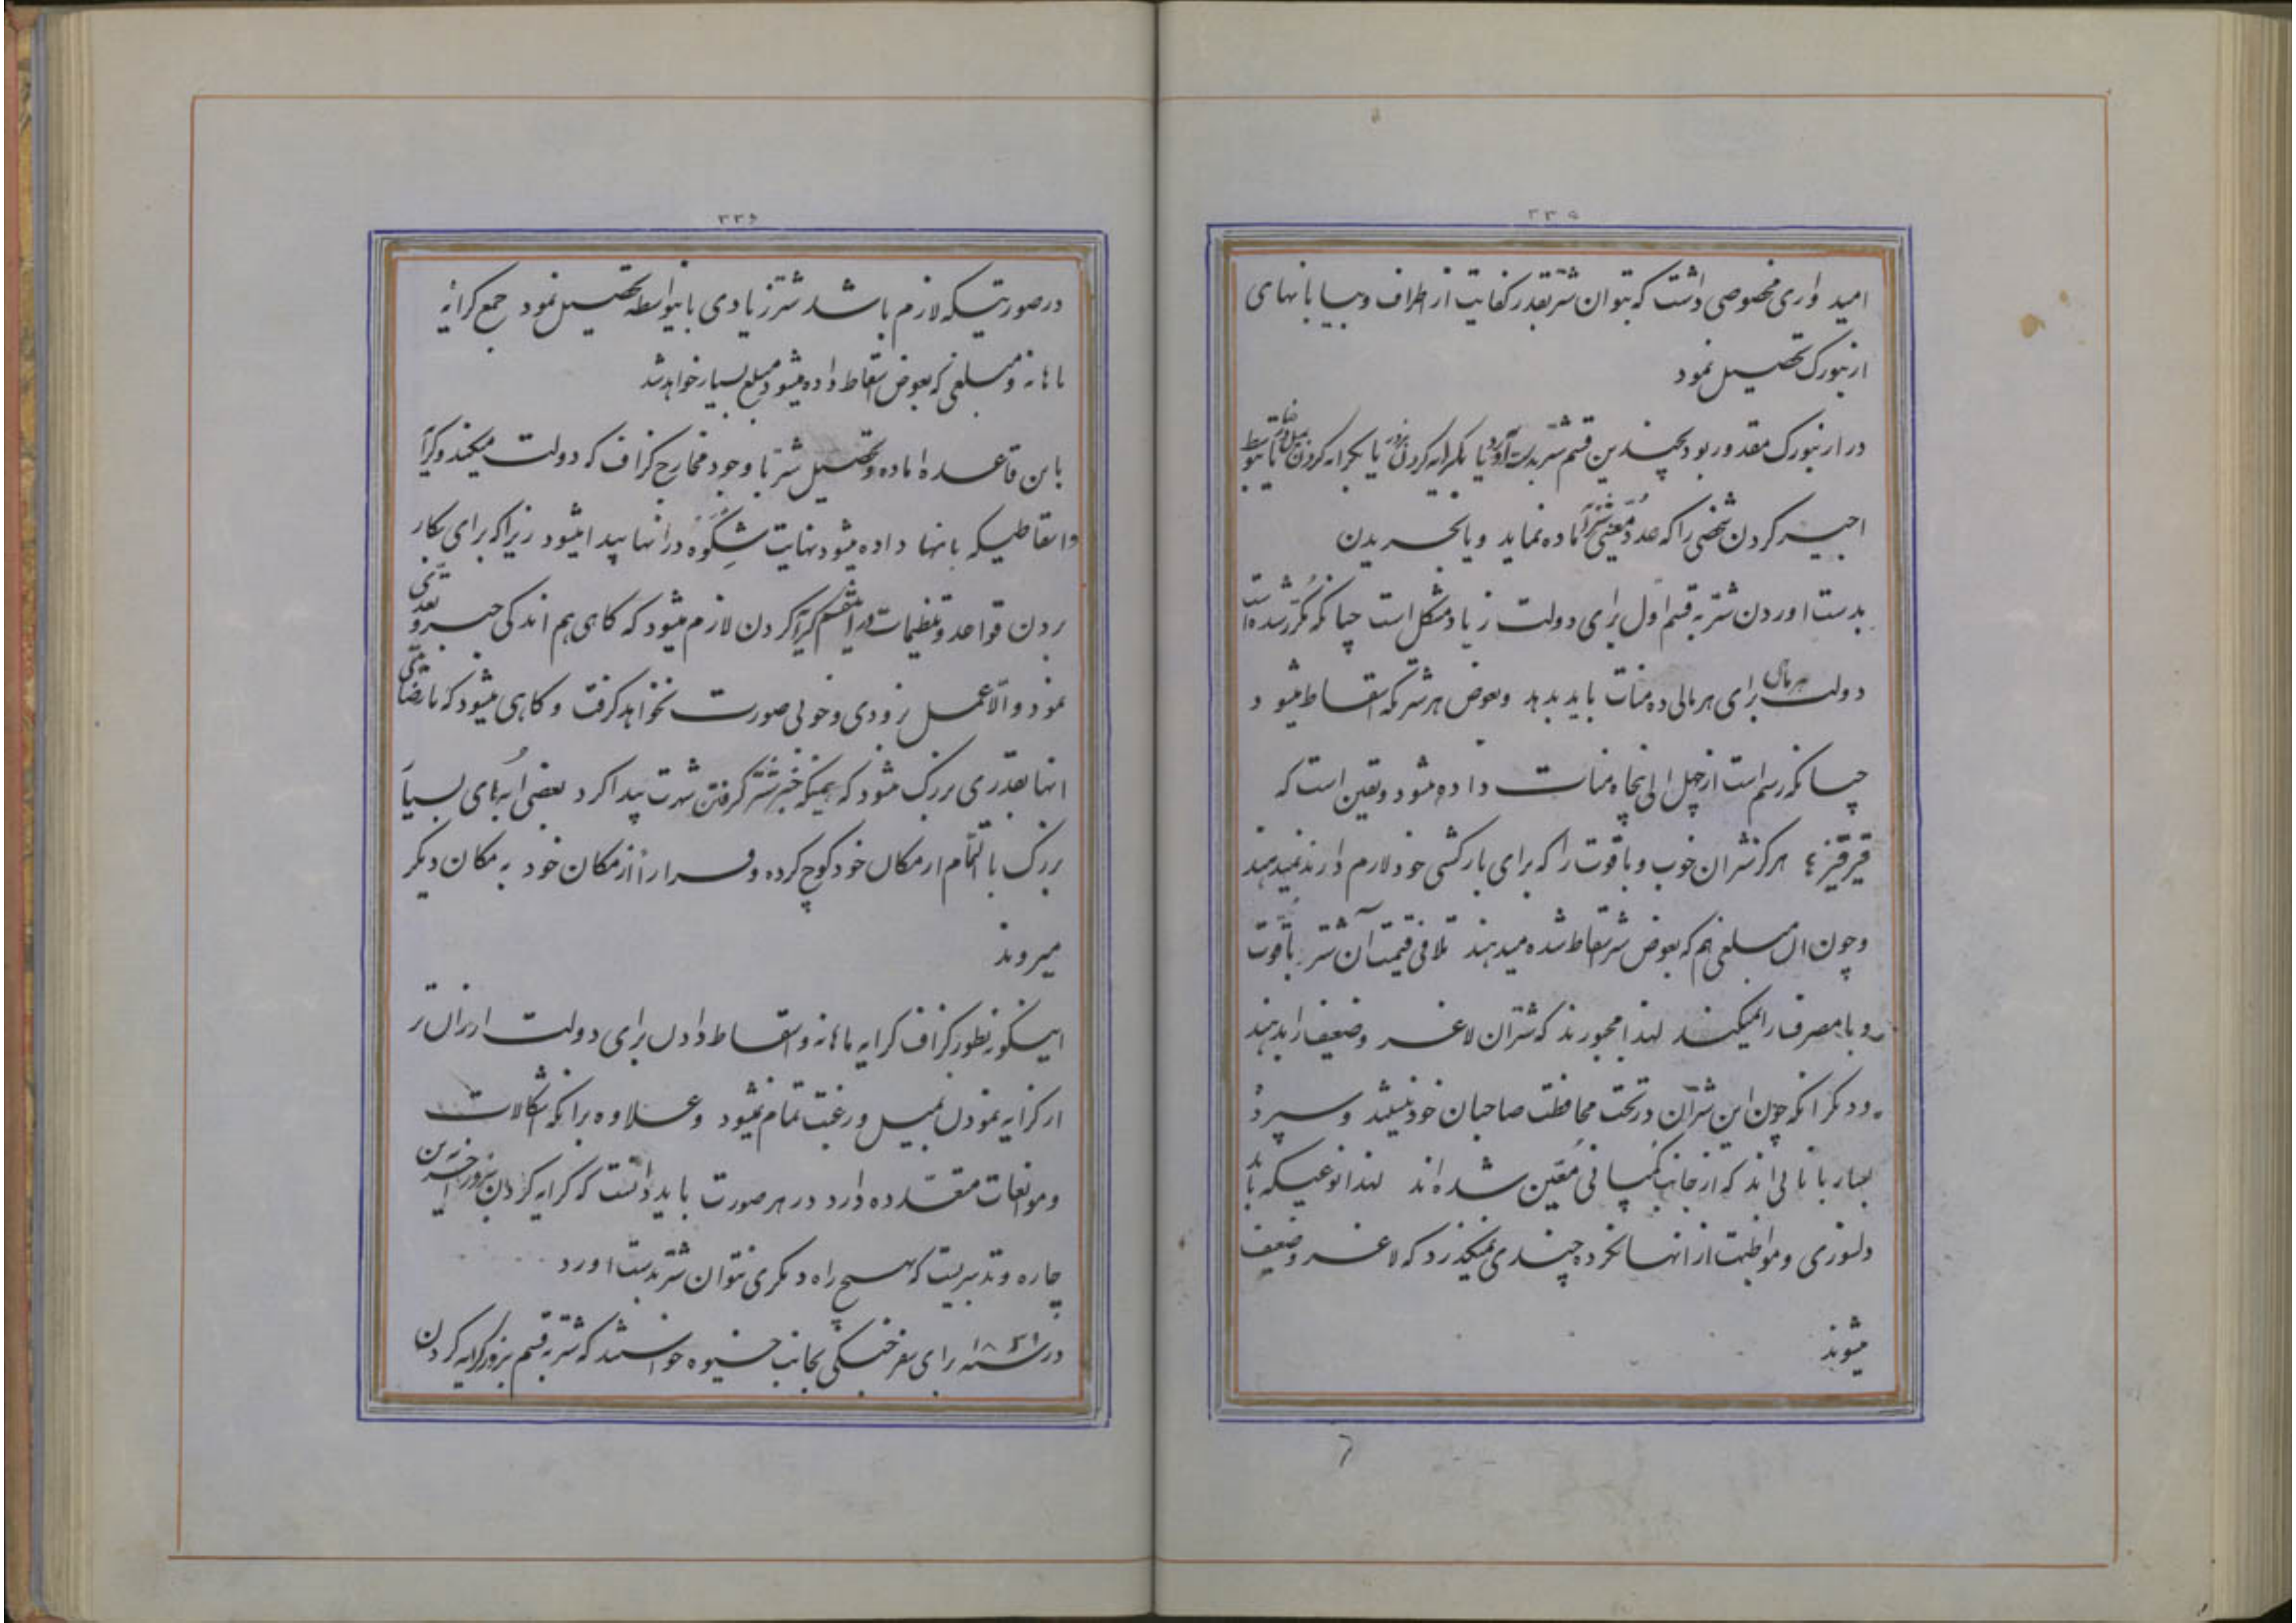 ۲۳۵
امید واری مخصوصی داشت که بتوان شتر بقدر کفایت از اطراف و بیابانهای
ارنبورک تحصیل نمود
در ارنبورک مقدور بود بچندین قسم شتر بدست آورد یا بکرایه کردن بزور یا بکرایه کردن بمیل و رضا یا بتوسط
اجیر کردن شخصی را که عدد معینی شتر آماده نماید و یا بخریدن
بدست اوردن شتر به قسم اول برای دولت زیاد مشکل است چنانکه مکرر شده است
دولت برای هر مالی ده منات باید بدهد و بعوض هر شتر که سقط میشود
چنانکه رسم است از چهل الی پنجاه منات داده میشود و یقین است که
قیرقیزها هرکز شتران خوب و با قوت را که برای بارکشی خود لازم دارند نمیدهند
و چون ان مبلغی هم که بعوض شتر سقط شده میدهند تلافی قیمت آن شتر با قوت
و با مصرف را نمیکند لهذا مجبورند که شتران لاغر و ضعیف را بدهند
و دیکر انکه چون این شتران در تحت محافظت صاحبان خود نیستند و سپرده
بساربانانی اند که از جانب کمپانی معین شده اند لهذا نوعیکه باید
دلسوزی و مواظبت از انها نکرده چندی نمیکذرد که لاغر و ضعیف
میشوند
۲۳۶
در صورتیکه لازم باشد شتر زیادی باینواسطه تحصیل نمود جمع کرایه
ماهانه و مبلغی که بعوض اسقاط داده میشود مبلغ بسیار خواهد شد
باین قاعده اماده و تحصیل شتر با وجود مخارج کزاف که دولت میکند و کرایه
و اسقاطیکه بانها داده میشود نهایت شکوه در انها پیدا میشود زیرا که برای بکار
بردن قواعد و تنظیمات در اینقسم کرایه کردن لازم میشود که کاهی هم اندکی جبر و تعدی
نمود و الا عمل بزودی و خوبی صورت نخواهد کرفت و کاهی میشود که نارضامندی
انها بقدری بزرک میشود که همینکه خبر شتر کرفتن شهرت پیدا کرد بعضی ابه های بسیار
بزرک بالتمام از مکان خود کوچ کرده و فرارا از مکان خود به مکان دیکر
میروند
اینکونه بطور کزاف کرایه ماهانه و اسقاط دادن برای دولت ارزان تر
از کرایه نمودن بمیل و رغبت تمام نمیشود و علاوه برانکه اشکالات
و موانعات متعدده دارد در هر صورت باید دانست که کرایه کردن بزور اخرین
چاره و تدبیریست که بهیچ راه دیکری نتوان شتر بدست اورد
در سنه برای سفر جنکی بجانب خیوه خواستند که شتر به قسم بزور کرایه کردن